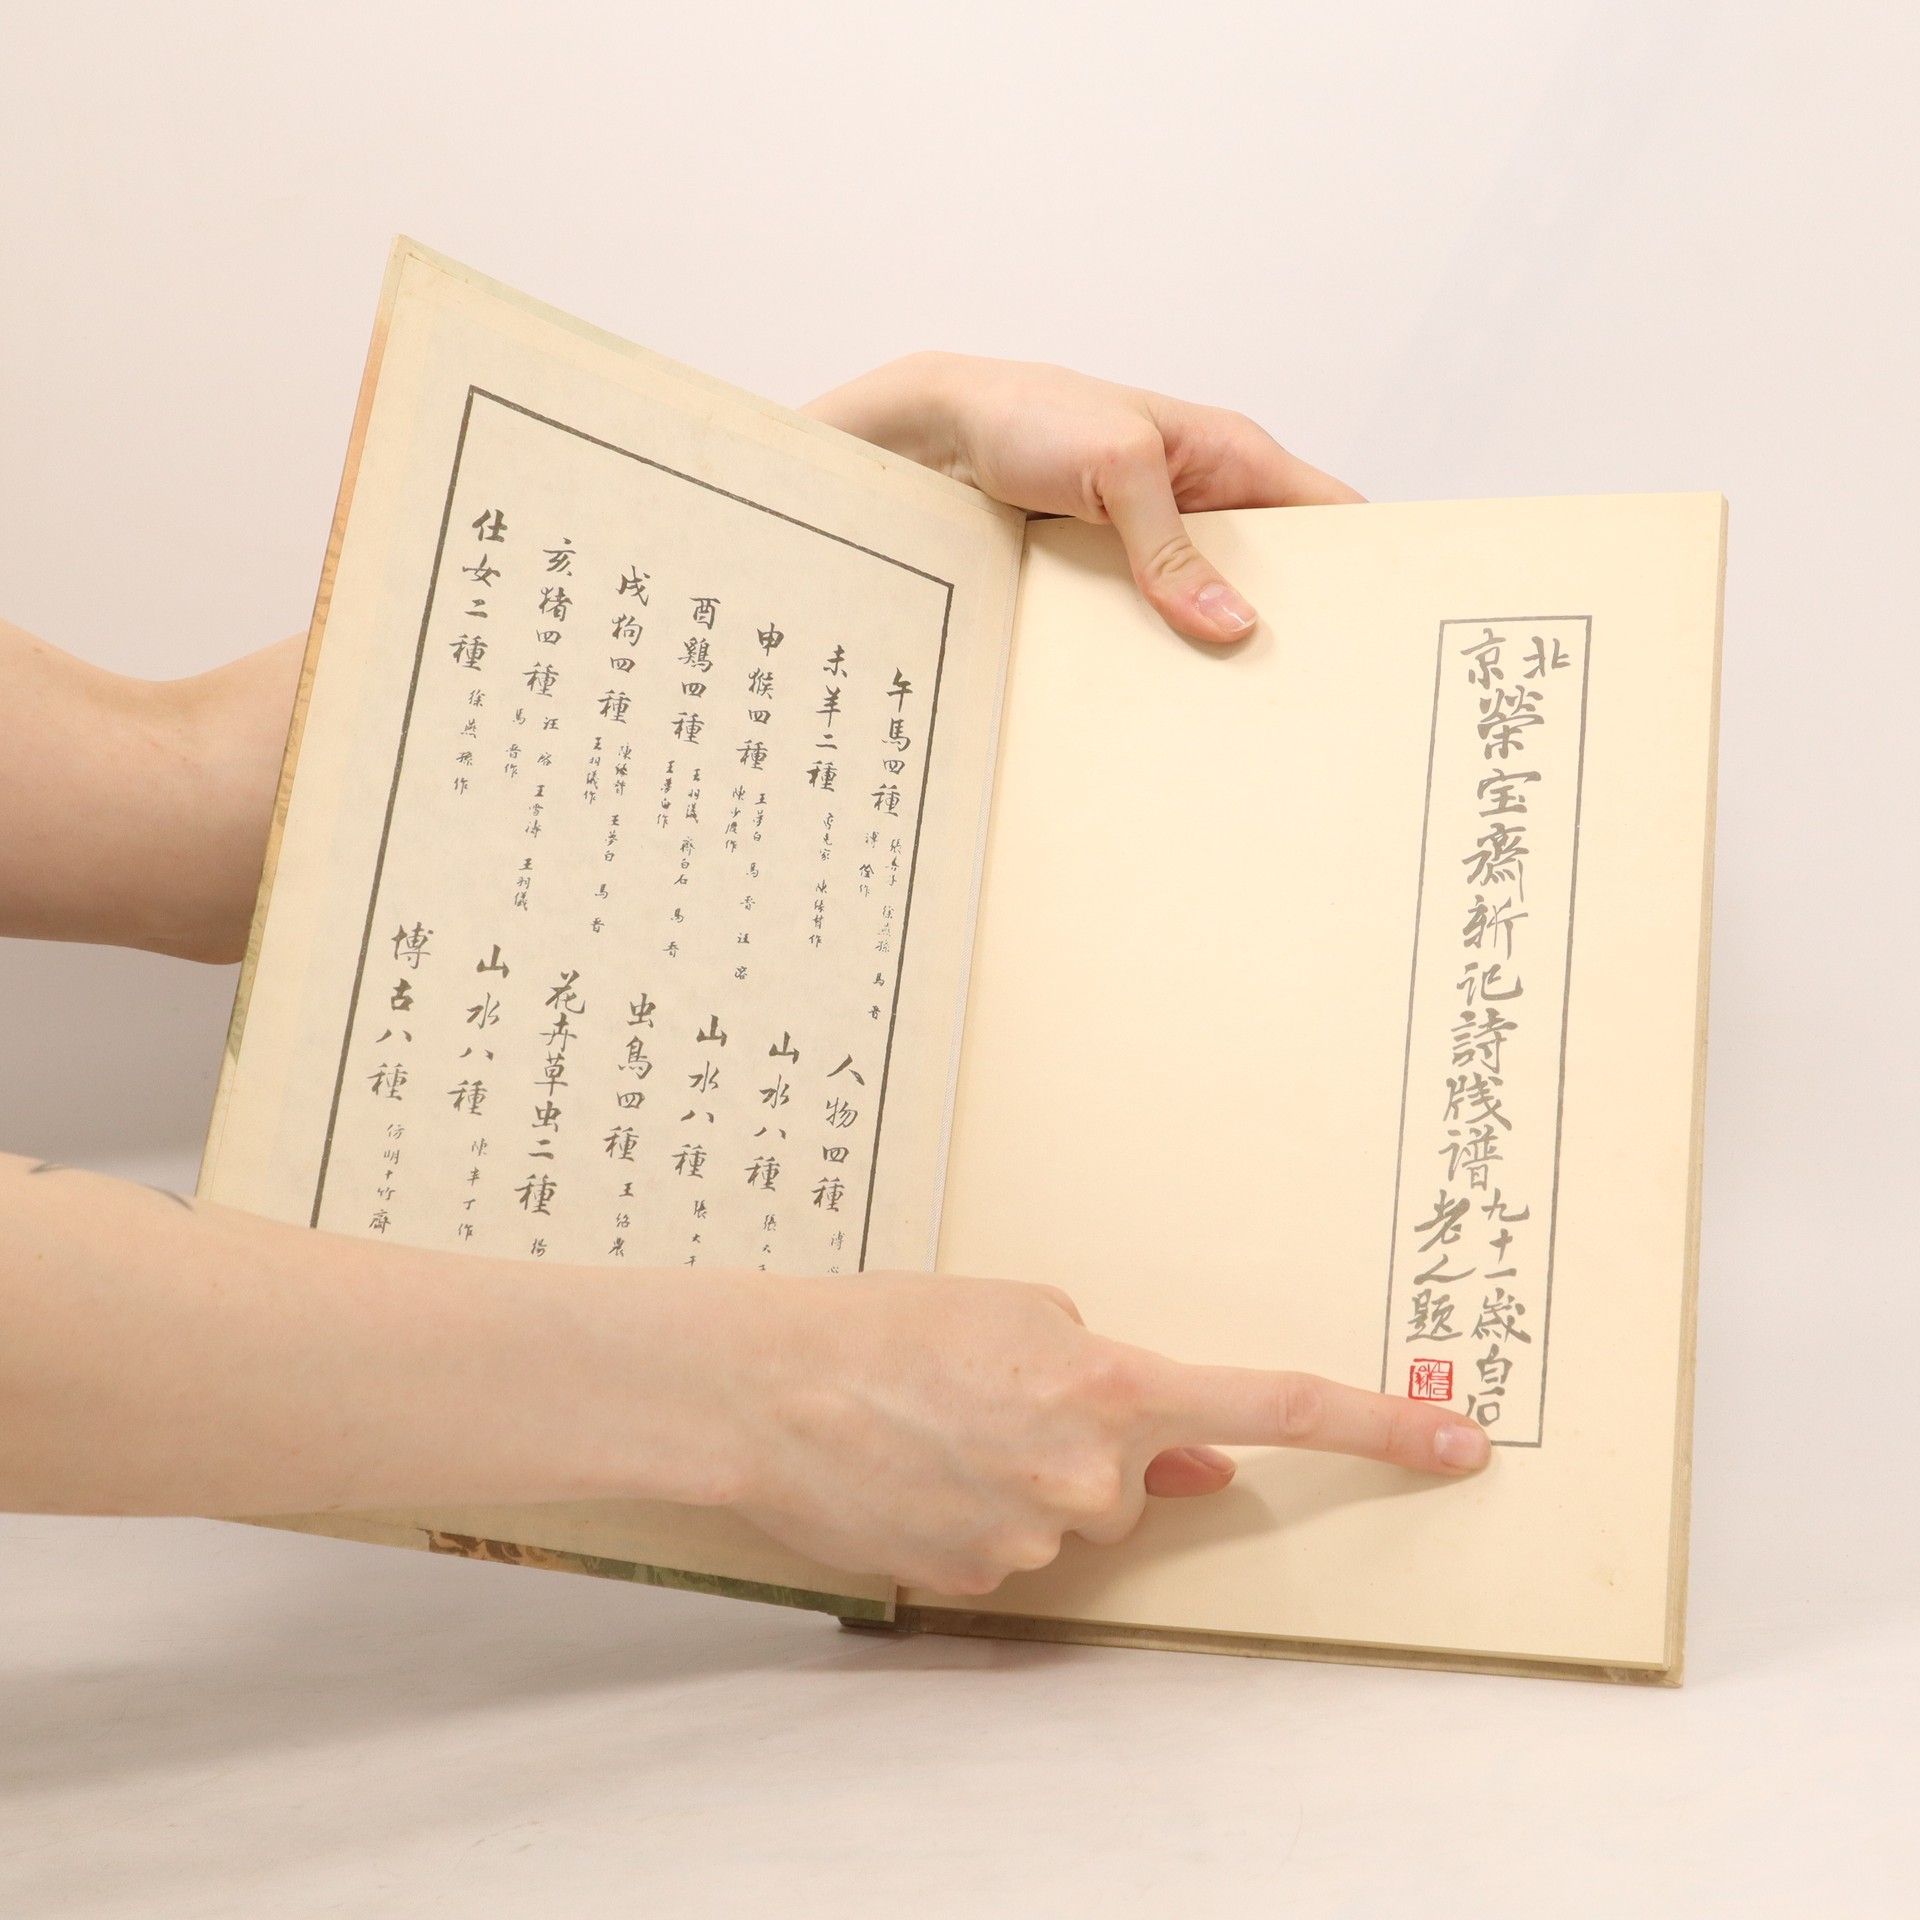 北京
榮宝斋新记詩牋谱
九十一歲白石
老人題
午馬四種
張善子 徐燕孫 馬晋
溥佺作
未羊二種
陳緣督作
申猴四種
王夢白 馬晋 汪溶
酉鷄四種
王羽儀 齊白石 馬晋
王夢白作
戌狗四種
陳緣督 王夢白 馬晋
王羽儀作
亥猪四種
汪溶 王雪濤 王羽儀
馬晋作
仕女二種
徐燕孫作
人物四種
溥心
山水八種
張大
山水八種
張大千
虫鳥四種
王紹農
花卉草虫二種
楊
山水八種
陳半丁作
博古八種
仿明十竹齋